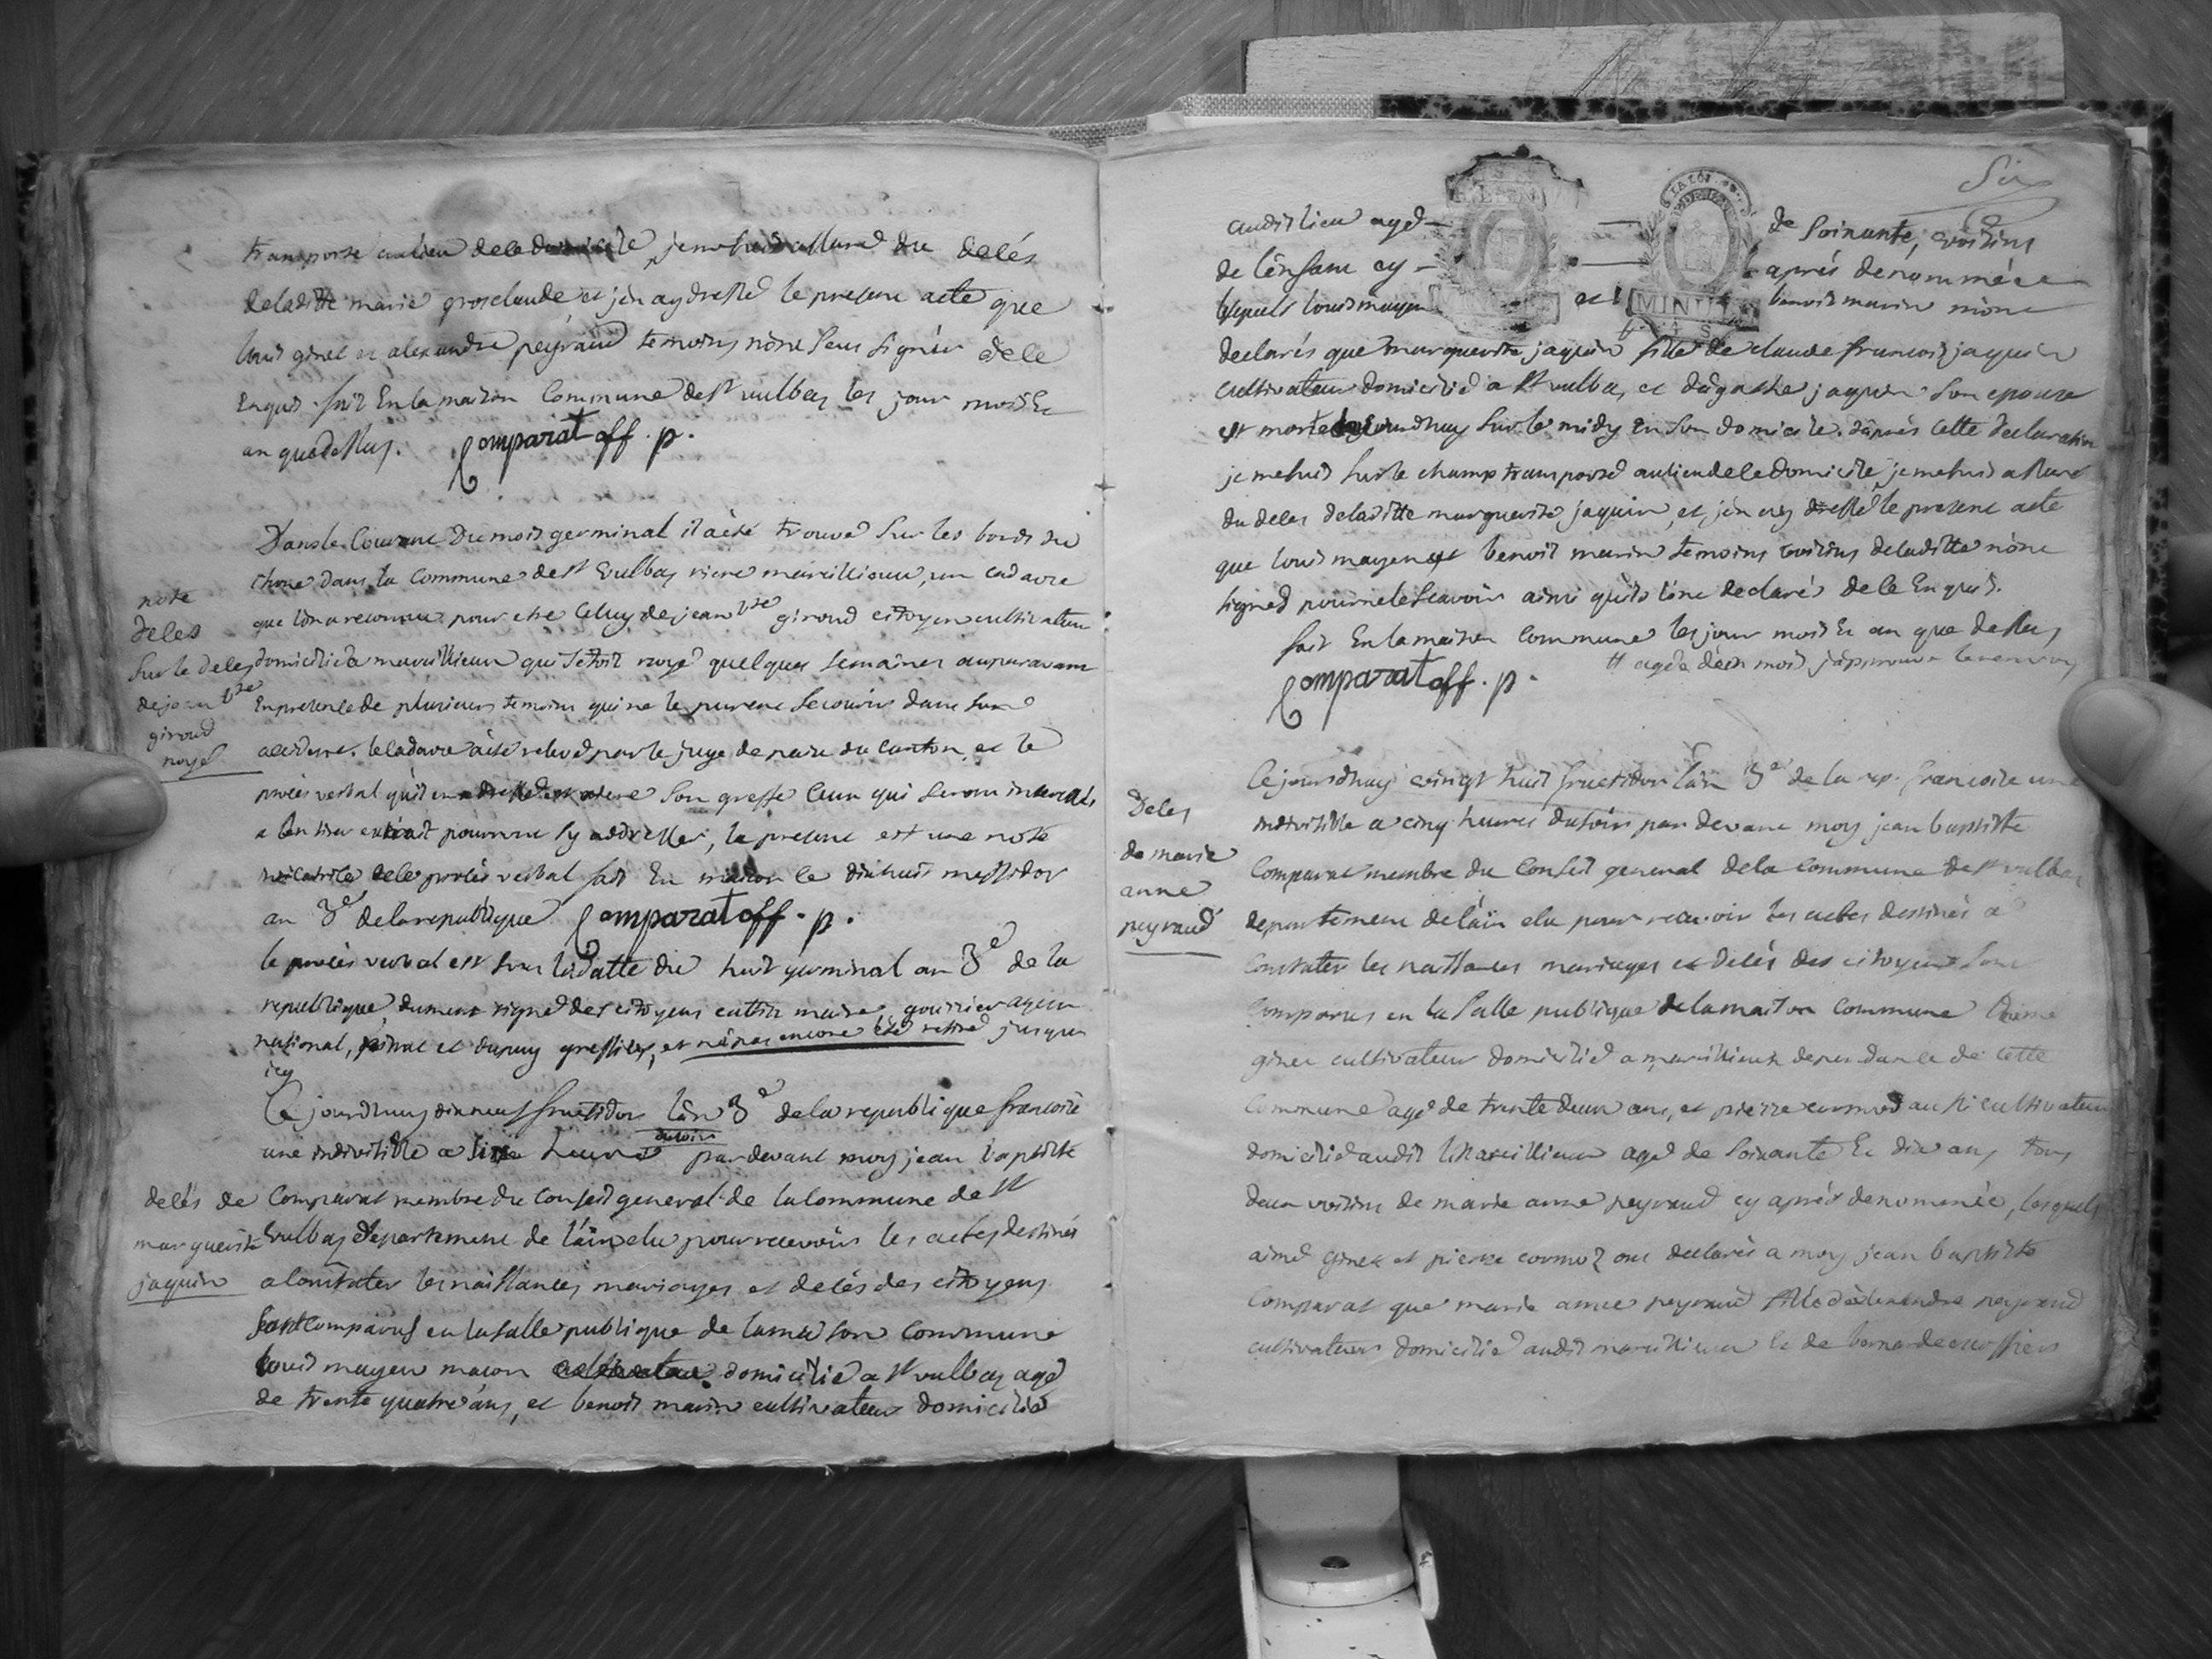 transporté au lieu de le domicile, je me suis assuré du delés
de laditte marie grosclaude et jén ay dressé le present acte que
louis ginet et alexandre peyraud temoins nònt sceu signér de le
enquis. fait En la maison Commune de st vulbas les jour mois Et
an que dessus. Comparat off. p.
note
deles
sur le deles
de jean bte
giroud
noyé
Dans le Courant du mois germinal il à été trouvé sur les bords du
rhone dans la Commune de st vulbas riere marcillieux, un cadavre
que l'on a reconnu pour etre Celuy de jean bte giroud citoyen cultivateur
domicilié a marcillieux qui s'étoit noyé quelques semaines auparavant
En presence de plusieurs temoins qui ne le purent secourir dans son
accident. le cadavre à été relevé par le juge de paix du canton, et le
procés verbal qu'il en a dressé est a son greffe Ceux qui seront interessés
a en tirer extrait pourront s'y addresser, la presente est une note
de le procés verbal fait En maison le dixhuit messidor
an 3e de la republique Comparat off. p.
le procés verbal est sous la datte du huit germinal an 3e de la
republique, dument signé des citoyens cuttin maire, gourrier agent
national, et dupuy greffier, et n'a pas encore été retiré jusques
icy
delés de
marguerite
jaquin
Ce jourdhuy dixneuf fructidor l'àn 3e de la republique francoise
une indivisible a six heures du soir par devant moy jean baptiste
Comparat membre du Conseil general de la Commune de st
vulbas departement de l'áin elu pour recevoir les actes destinés
a Constater les naissances, mariages et delés des citoyens
sont Comparus en la salle publique de la maison Commune
louis mayen macon domicilié a st vulbas agé
de trente quatre áns, et benoit marin cultivateur domicilié
Six
audit lieu agé de soixante, voisins
de l'énfant cy aprés denommée
lesquels louis mayen et benoit marin mònt
declarés que marguerite jaquin fille de claude francois jaquin
cultivateur domicilié a st vulbas, et d'ágathe jaquin son epouse
est morte aujourdhuy sur le midy En son domicile. d'aprés cette declaration
je me suis sur le champ transporté au lieu de le domicile, je me suis assuré
du deles de laditte marguerite jaquin, et jén ay dressé le present acte
que louis mayen et benoit marin temoins voisins de laditte nònt
signés pour ne le scavoir ainsi qu'ils l'ònt declarés de le Enquis.
fait En la maison Commune les jour mois Et an que dessus
# agée dé mois jápprouve le renvoy
Comparat off. p.
Deles
de marie
anne
peyraud
Ce jourdhuy vingt huit fructidor l'án 3e de la rep. francoise une
indivisible a cinq heures du soir par devant moy jean baptiste
Comparat membre du Conseil general de la Commune de st vulbas
departement de l'áin elu pour recevoir les actes destinés a
Constater les naissances mariages et delés des citoyens sont
Comparus en la salle publique de la maison Commune aimé
ginet cultivateur domicilié a marcillieux dependance de cette
Commune agé de trente deux ans, et pierre cormoz aussi cultivateur
domicilié audit Marcillieux agé de soixante Et dix ans tous
deux voisins de marie anne peyraud cy aprés denomenée, lesquels
aimé ginet et pierre cormoz ont declarés a moy jean baptiste
Comparat que marie anne peyraud fille d'alexandre peyraud
cultivateur domicilié audit marcillieux Et de bernarde